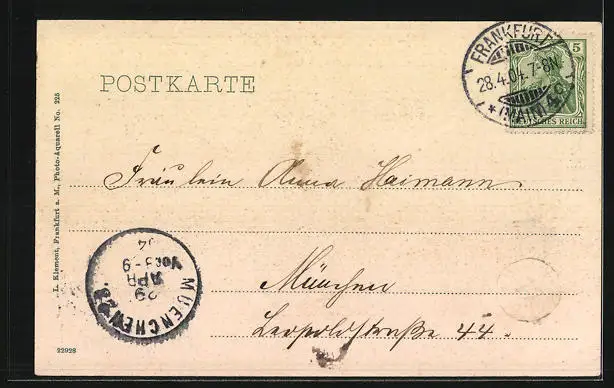 POSTKARTE
FRANKFURT
28.4.04. 7-8N.
* (MAIN)
5
DEUTSCHES REICH
Fräulein Anna Haimann.
München
Leopoldstraße 44.
MUENCHEN
29
APR
Vor 8-9
04
L. Klement, Frankfurt a. M., Photo-Aquarell No. 225
22928